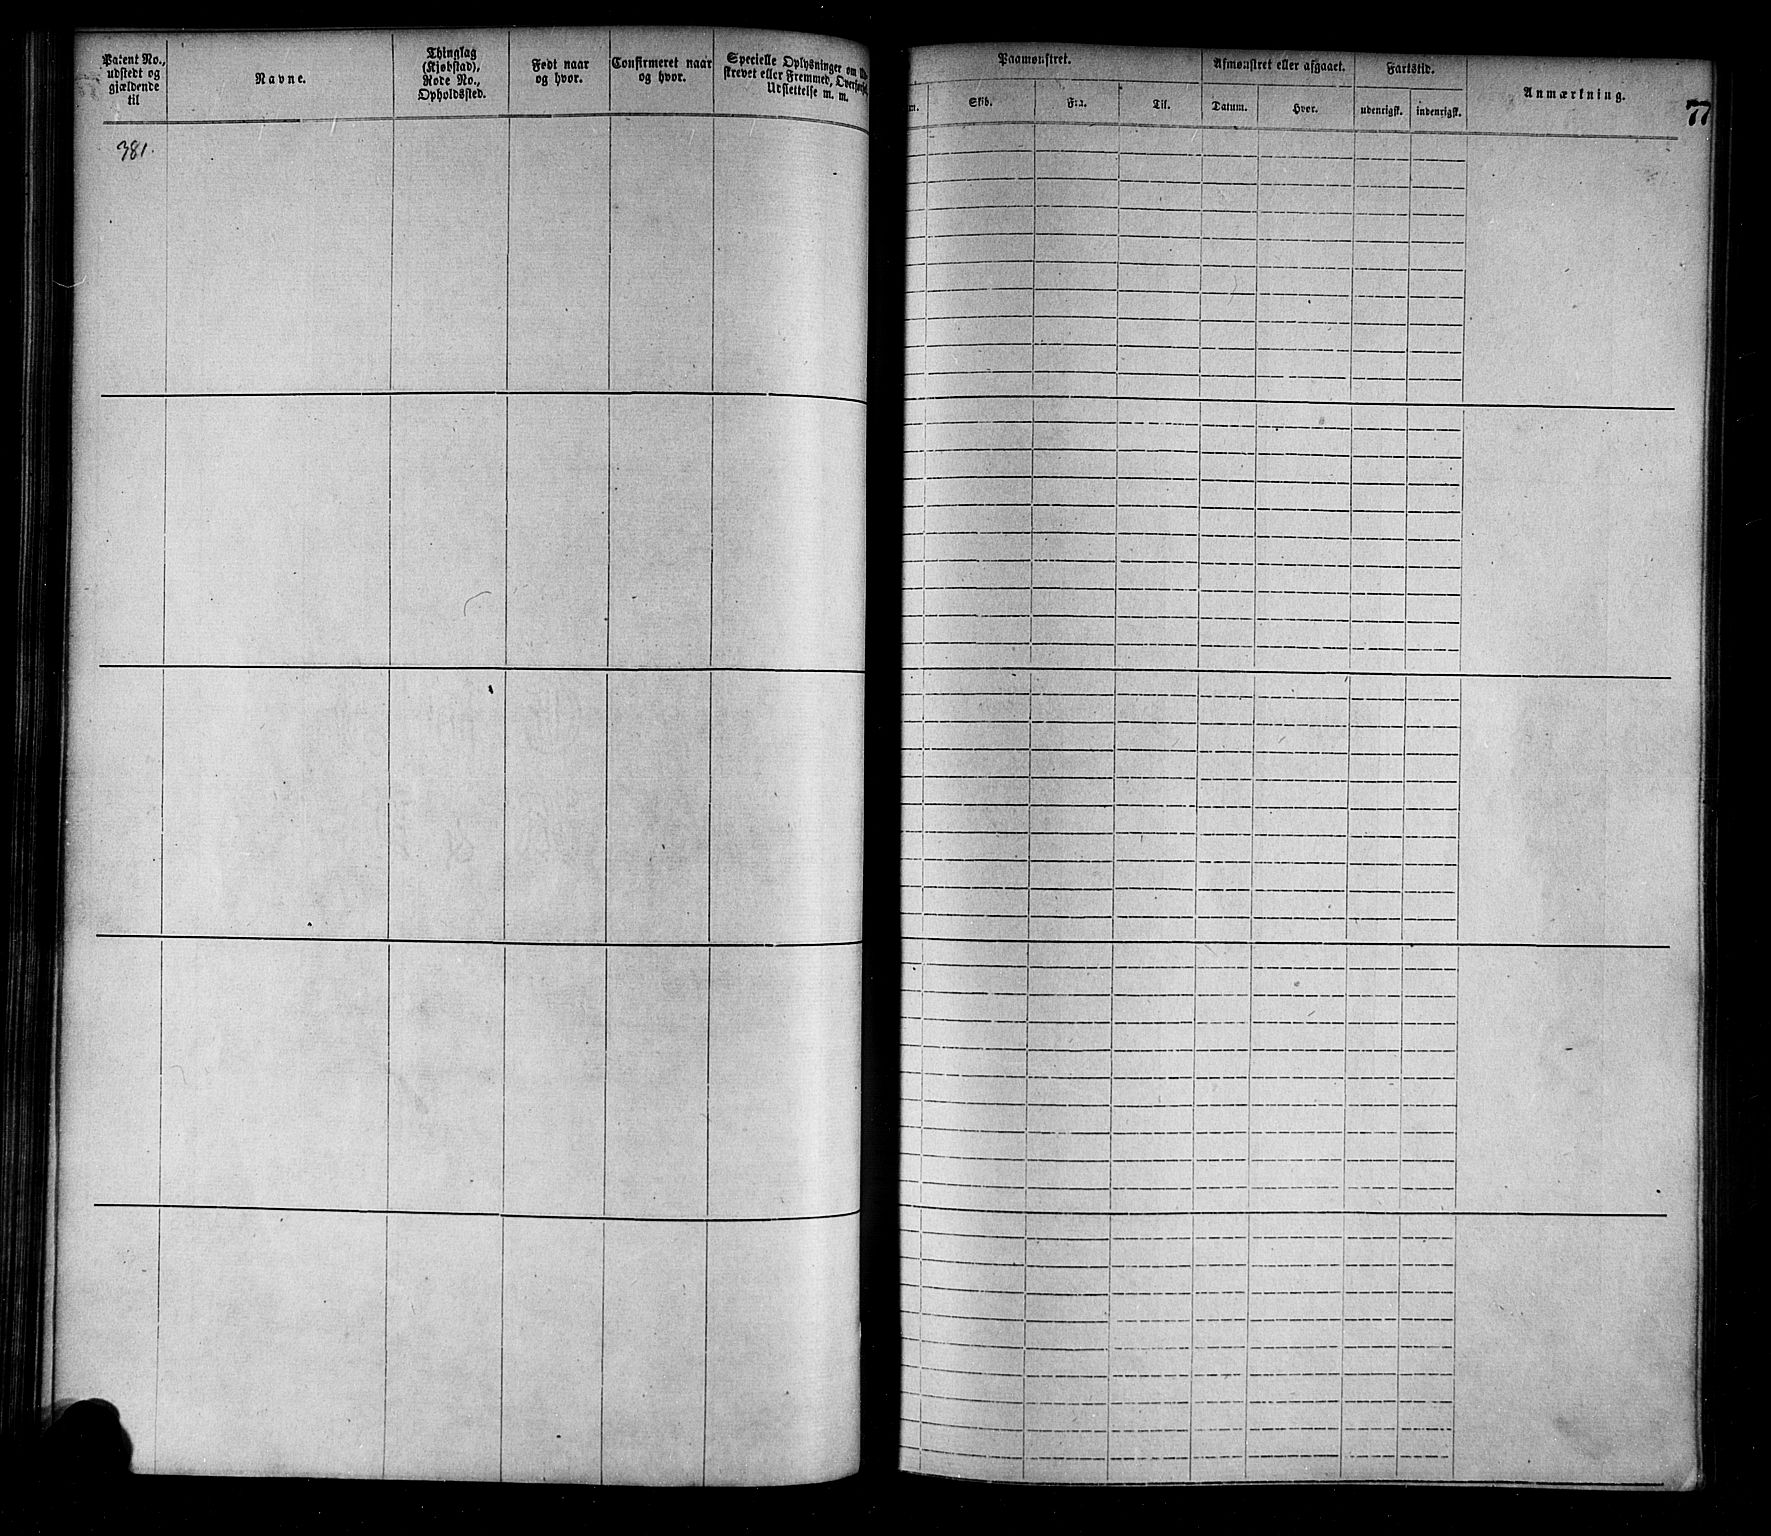 Patent No.,
udstedt og
gjældende
til
Navne.
Thinglag
(Kjøbstad),
Rode No.,
Opholdssted.
Født naar
og hvor.
Confirmeret naar
og hvor.
Specielle Oplysninger om
skrevet eller Fremmed,
Udslettelse m. m.
381.
Paamønstret.
Afmønstret eller afgaaet.
Fartstid.
Anmærkning.
77
Skib.
Fra.
Til.
Datum.
Hvor.
udenrigsk.
indenrigsk.